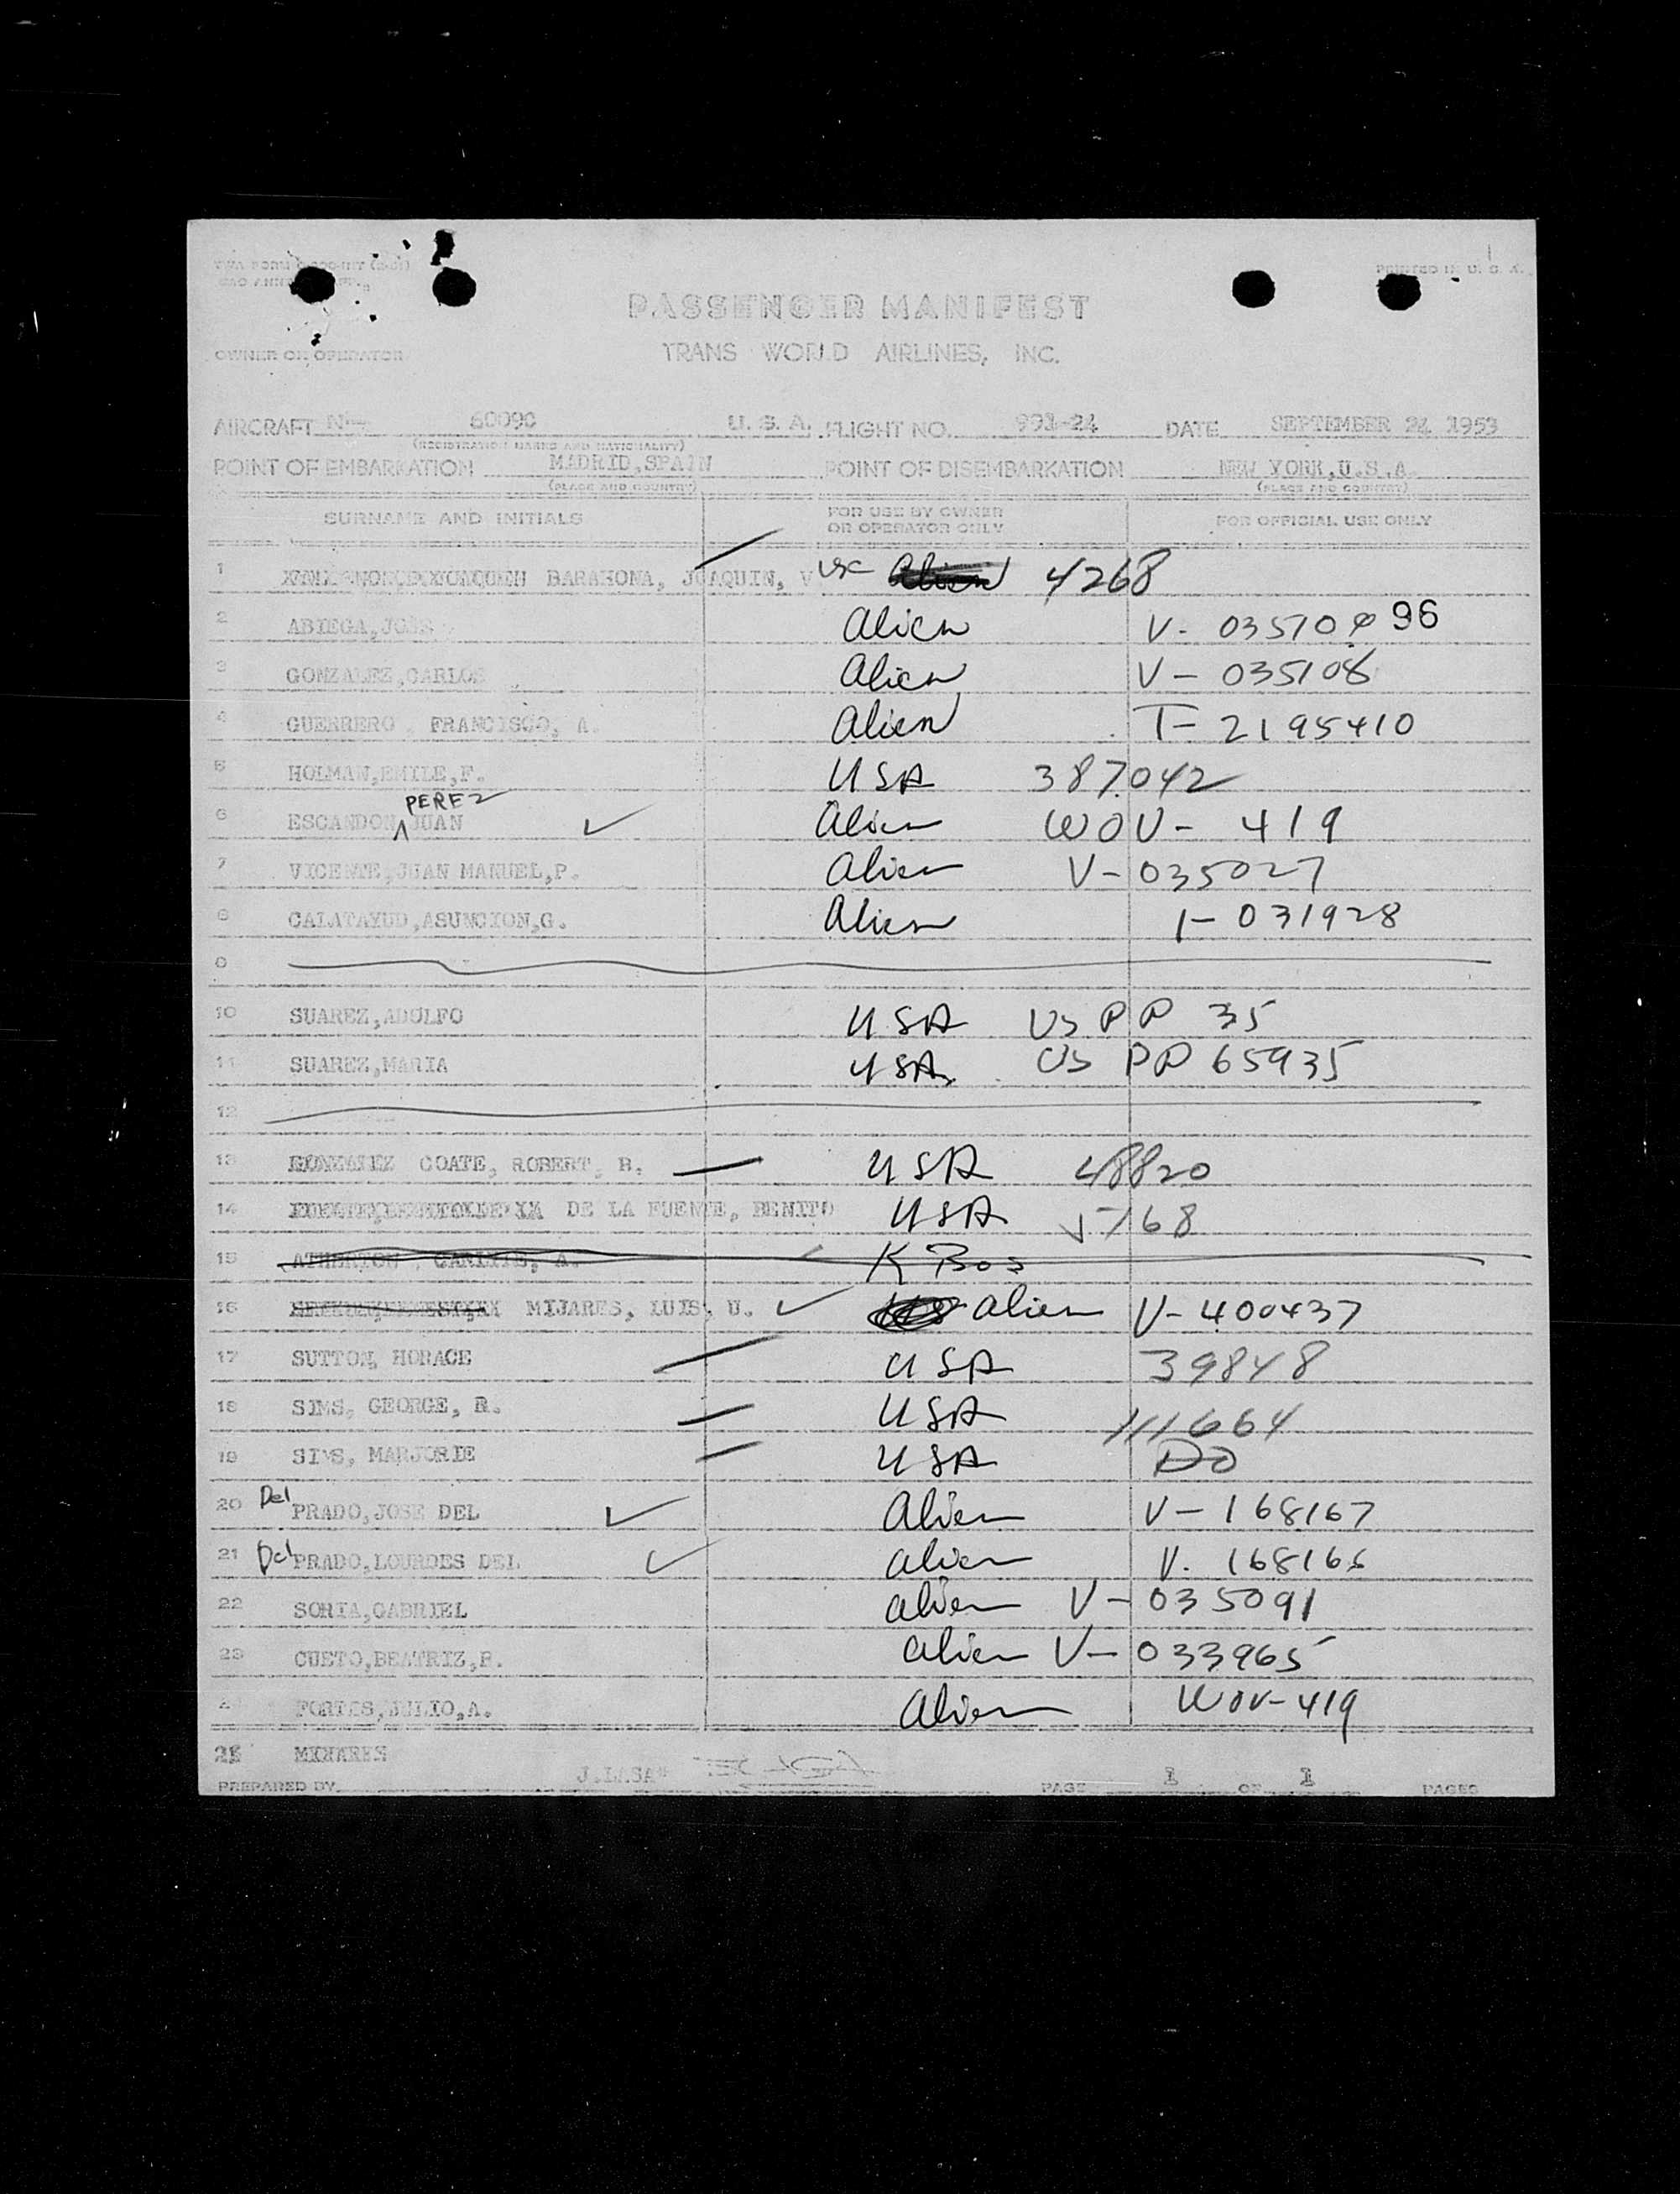 PRINTED IN U. S. A.
PASSENGER MANIFEST
TRANS WORLD AIRLINES, INC.
OWNER OR OPERATOR
AIRCRAFT N- 60090 U. S. A. FLIGHT NO. 991-24 DATE SEPTEMBER 24 1953
(REGISTRATION MARKS AND NATIONALITY)
POINT OF EMBARKATION MADRID,SPAIN POINT OF DISEMBARKATION NEW YORK,U.S.A.
(PLACE AND COUNTRY) (PLACE AND COUNTRY)
SURNAME AND INITIALS FOR USE BY OWNER OR OPERATOR ONLY FOR OFFICIAL USE ONLY
1 BARAHONA, JOAQUIN, V usc Alien 4268
2 ABIEGA,JOSE Alien V- 035100 96
3 GONZALEZ,CARLOS Alien V- 035108
4 GUERRERO, FRANCISCO, A. Alien T- 2195410
5 HOLMAN,EMILE,F. USA 387042
6 ESCANDON PEREZ JUAN ✓ Alien WOV- 419
7 VICENTE,JUAN MANUEL,P. Alien V- 035027
8 CALATAYUD,ASUNCION,G. Alien 1- 031928
9
10 SUAREZ,ADOLFO USA US PP 35
11 SUAREZ,MARIA USA US PP 65935
12
13 GONZALEZ COATE, ROBERT, R. USA 48820
14 DE LA FUENTE, BENITO USA 5768
15 ATHERTON, CARLYLE, A. K Bos
16 MIJARES, LUIS, U. ✓ Alien V- 400437
17 SUTTON, HORACE USA 39848
18 SIMS, GEORGE, R. USA 111664
19 SIMS, MARJORIE USA DO
20 Del PRADO,JOSE DEL ✓ Alien V- 168167
21 Del PRADO,LOURDES DEL ✓ Alien V. 168166
22 SORIA,GABRIEL Alien V- 035091
23 CUETO,BEATRIZ,P. Alien V- 033965
24 FORTES,JULIO,A. Alien WOV- 419
25 MIJARES
PREPARED BY J.LASA PAGE 1 OF 1 PAGES